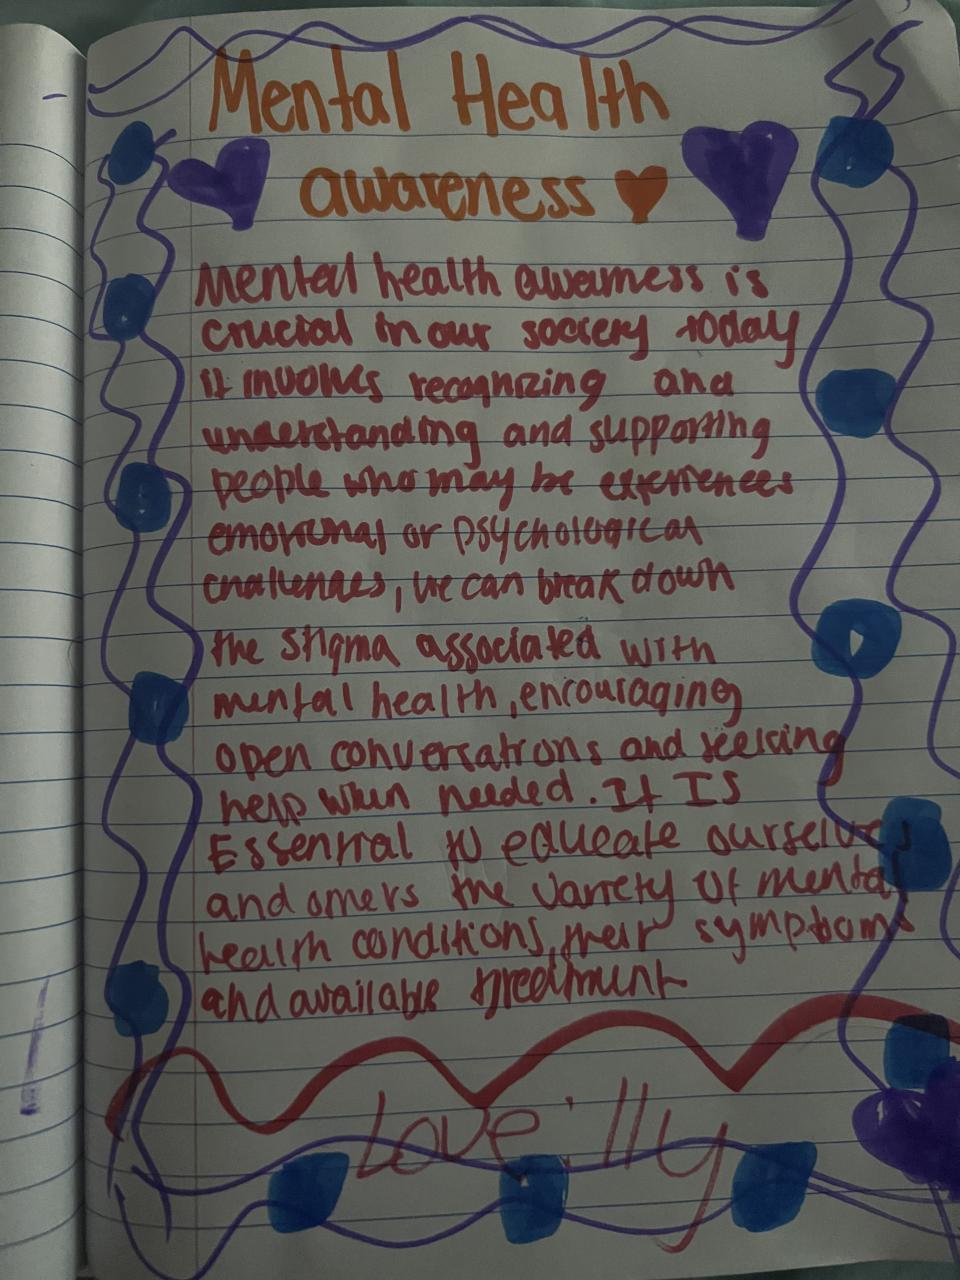 Mental Health
awareness
Mental health awarness is
crucial in our society today
it involves recognizing and
understanding and supporting
people who may be experiences
emotional or psychological
challenges, we can break down
the stigma associated with
mental health, encouraging
open conversations and seeking
help when needed. It IS
Essential to educate ourselves
and others the variety of mental
health conditions, their symptoms
and available treatment
Love, Illy